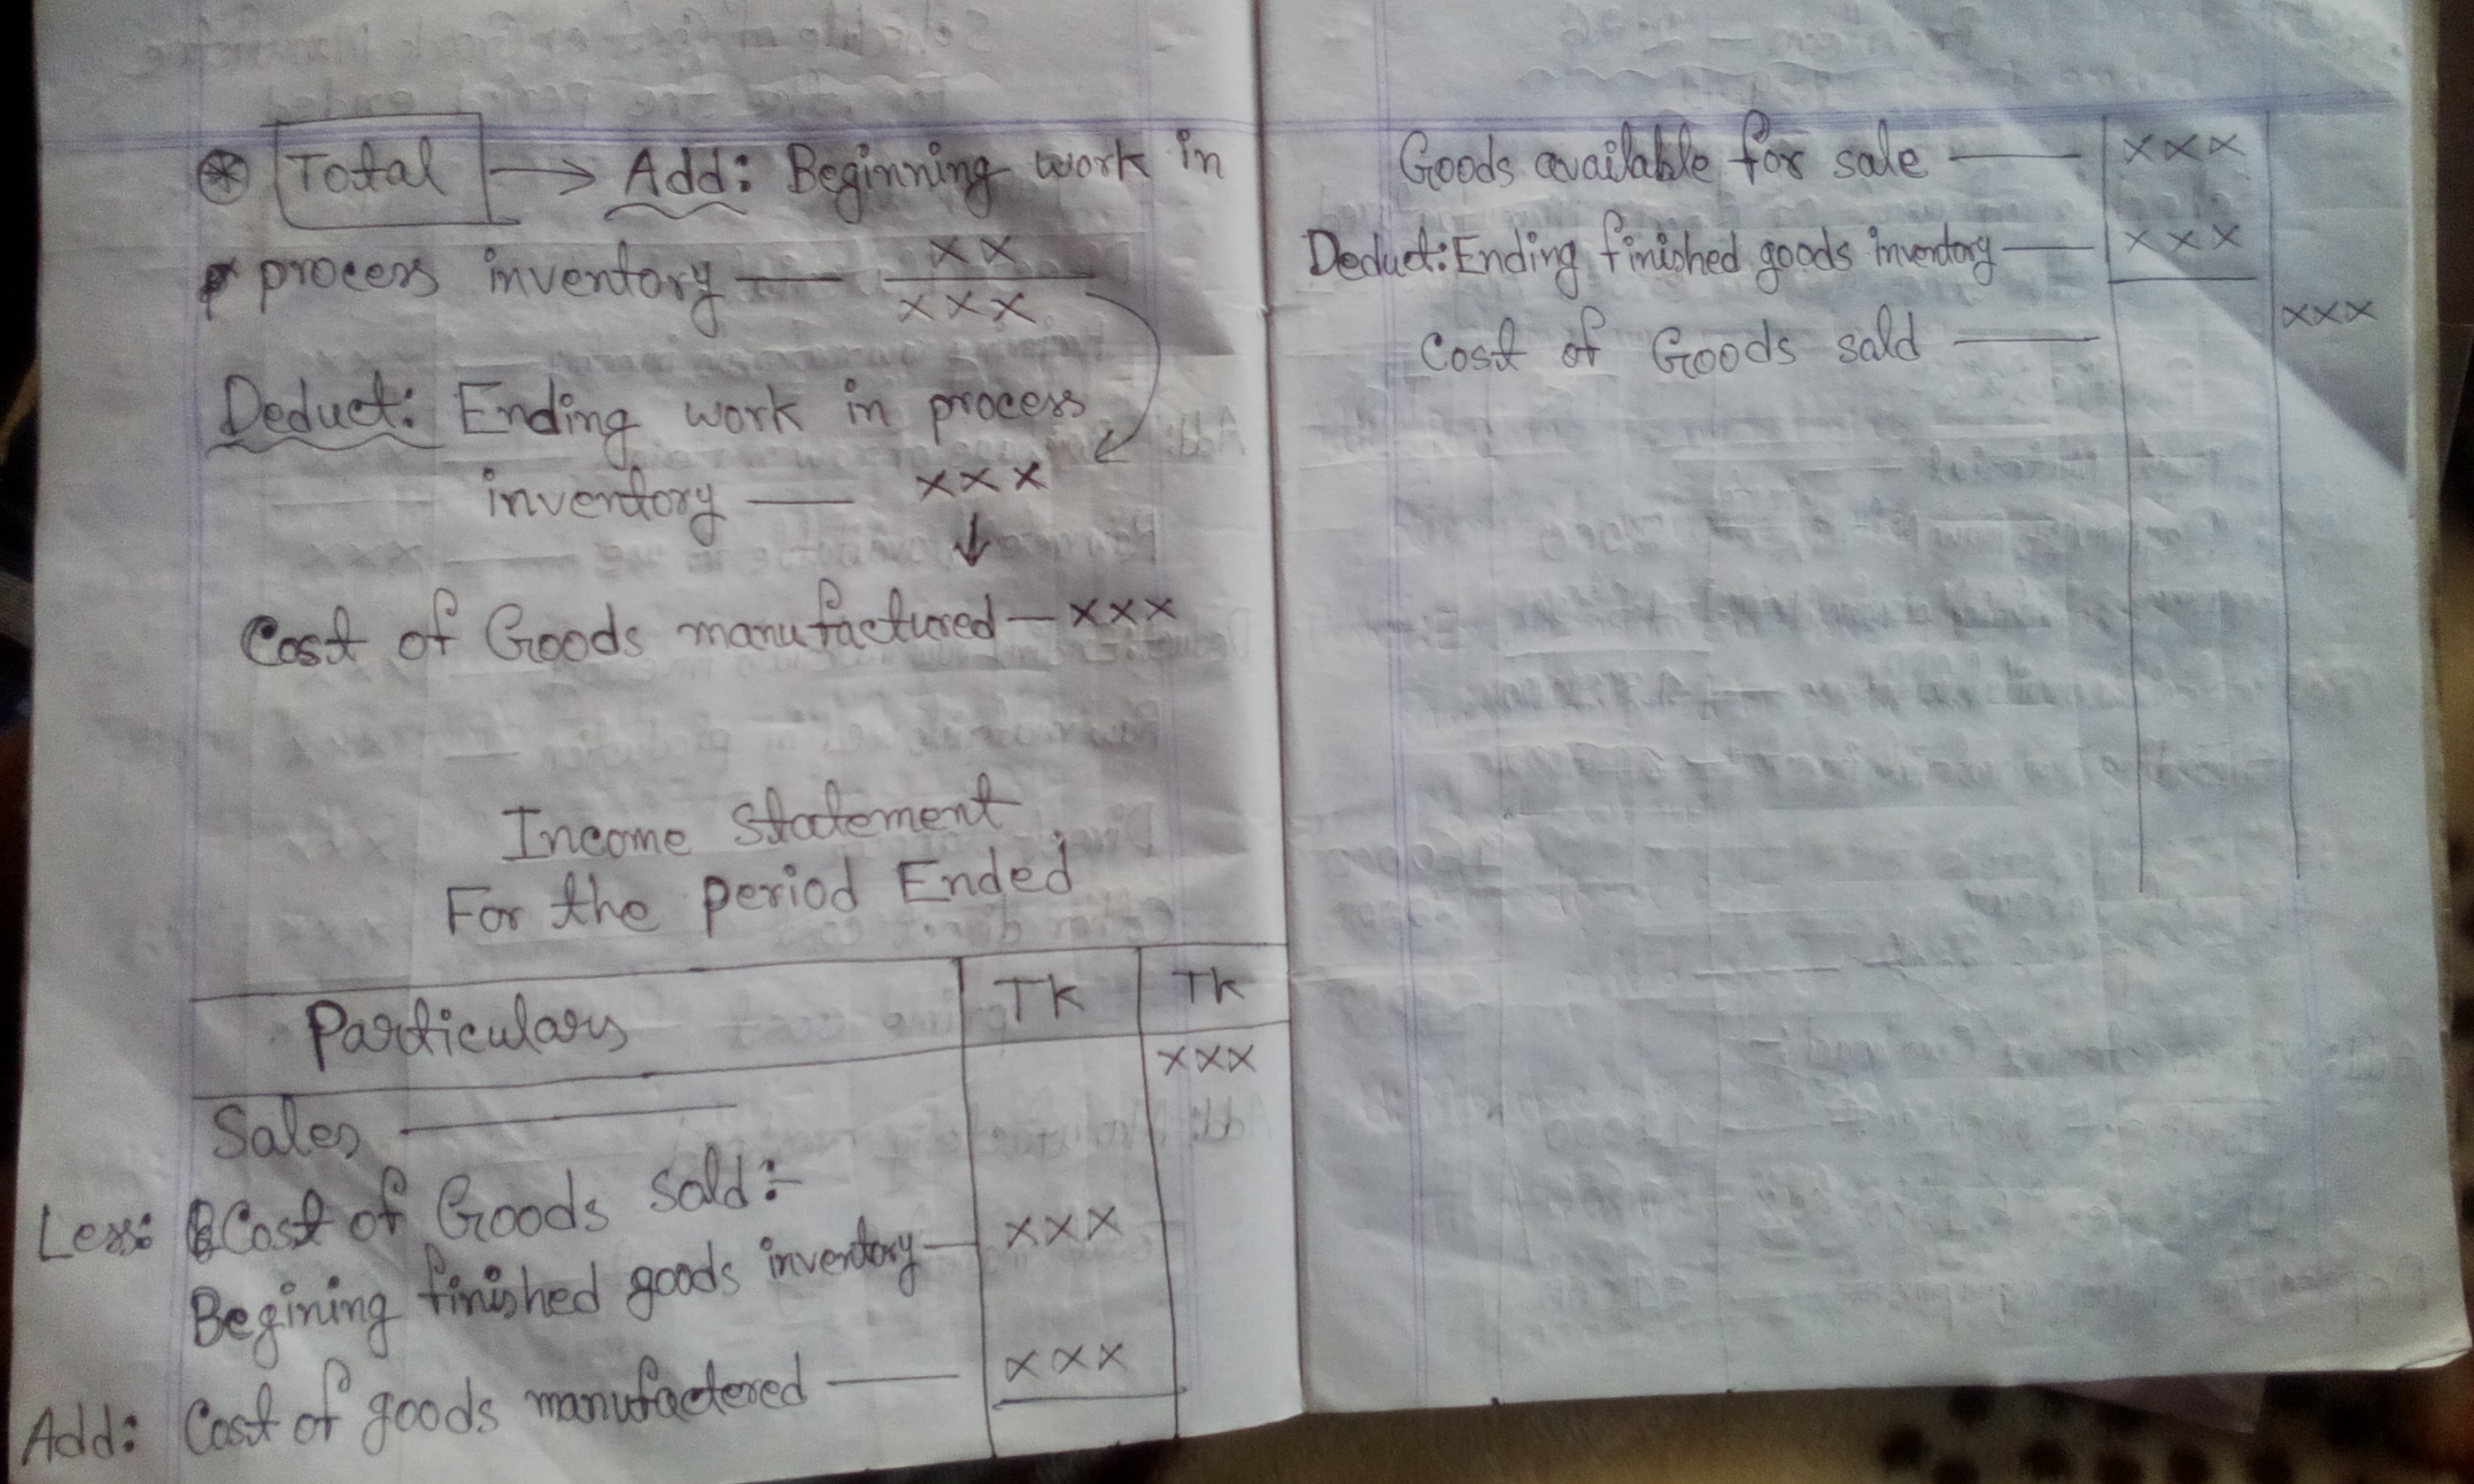 Total → Add: Beginning work in
process inventory — xx
xxx
Deduct: Ending work in process
inventory — xxx
↓
Cost of Goods manufactured — xxx
Income Statement
For the period Ended
Particulars Tk Tk
Sales — xxx
Less: Cost of Goods sold:-
Begining finished goods inventory — xxx
Add: Cost of goods manufactered — xxx
Goods available for sale — xxx
Deduct: Ending finished goods inventory — xxx
Cost of Goods sold — xxx